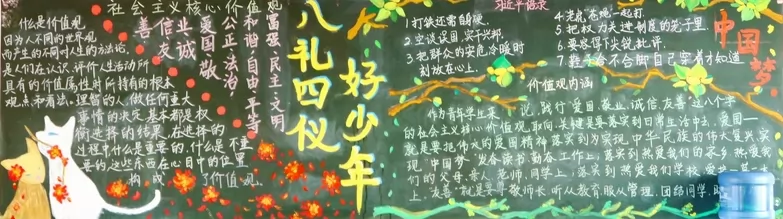 社会主义核心价值观
什么是价值观
因为人不同的世界观
而产生的不同对人生的方法论,
是人们在认识、评价人生活动所
具有的价值属性时所持有的根本
观点和看法。理智的人做任何重大
事情的决定基本都是权
衡选择的结果,在选择的
过程中什么是重要的,什么是不重
要的这些东西在心目中的位置
构成了价值观。
富强、民主、文明
和谐、自由、平等
公正、法治、
爱国、敬
业、诚
信、友
善
八礼四仪
好少年
习近平语录
1.打铁还需自身硬
2.空谈误国,实干兴邦.
3.把群众的安危冷暖时
刻放在心上.
4.老虎、苍蝇一起打.
5.把权力关进制度的笼子里.
6.要容得下尖锐批评.
7.鞋子合不合脚自己穿着才知道
中国梦
价值观内涵
作为青年学生来说,践行“爱国、敬业、诚信、友善”这八个字
的社会主义核心价值观取向,关键是要落实到日常生活中去。爱国一
就是要把伟大的爱国精神落实到为实现中华民族的伟大复兴,实
现“中国梦”发奋读书、勤奋工作上,落实到热爱我们的家乡,热爱我
们的父母、亲人、老师、同学上,落实到热爱我们学校
上,“友善”就是要尊敬师长,听从教育服从管理,团结同学,